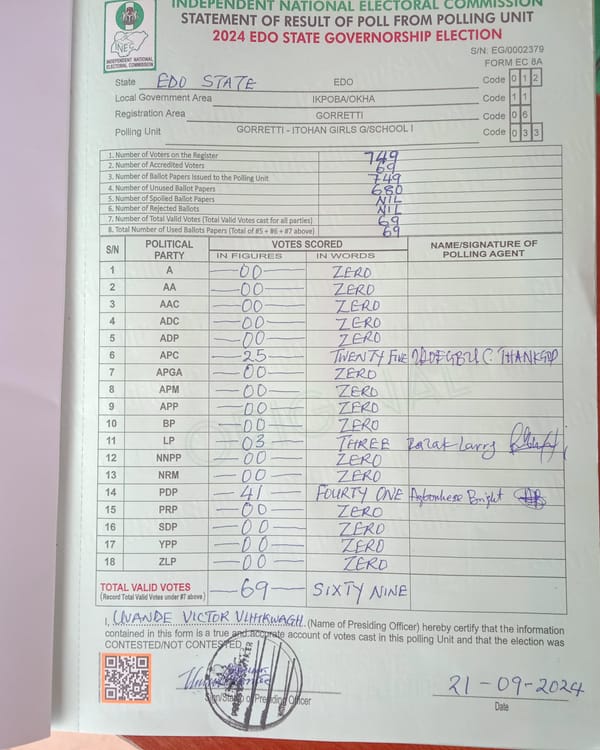 INDEPENDENT NATIONAL ELECTORAL COMMISSION
STATEMENT OF RESULT OF POLL FROM POLLING UNIT
2024 EDO STATE GOVERNORSHIP ELECTION
INEC
INDEPENDENT NATIONAL
ELECTORAL COMMISSION
S/N: EG/0002379
FORM EC 8A
State EDO STATE EDO Code 0 1 2
Local Government Area IKPOBA/OKHA Code 1 1
Registration Area GORRETTI Code 0 6
Polling Unit GORRETTI - ITOHAN GIRLS G/SCHOOL I Code 0 3 3
1. Number of Voters on the Register 749
2. Number of Accredited Voters 69
3. Number of Ballot Papers Issued to the Polling Unit 749
4. Number of Unused Ballot Papers 680
5. Number of Spoiled Ballot Papers NIL
6. Number of Rejected Ballots NIL
7. Number of Total Valid Votes (Total Valid Votes cast for all parties) 69
8. Total Number of Used Ballots Papers (Total of #5 + #6 + #7 above) 69
S/N POLITICAL PARTY VOTES SCORED NAME/SIGNATURE OF POLLING AGENT
IN FIGURES IN WORDS
1 A 00 ZERO
2 AA 00 ZERO
3 AAC 00 ZERO
4 ADC 00 ZERO
5 ADP 00 ZERO
6 APC 25 TWENTY FIVE C. THANKGOD
7 APGA 00 ZERO
8 APM 00 ZERO
9 APP 00 ZERO
10 BP 00 ZERO
11 LP 03 THREE Razak Larry
12 NNPP 00 ZERO
13 NRM 00 ZERO
14 PDP 41 FOURTY ONE Bright
15 PRP 00 ZERO
16 SDP 00 ZERO
17 YPP 00 ZERO
18 ZLP 00 ZERO
ORIGINAL
TOTAL VALID VOTES 69 SIXTY NINE
(Record Total Valid Votes under #7 above)
I, UVANDE VICTOR (Name of Presiding Officer) hereby certify that the information
contained in this form is a true and accurate account of votes cast in this polling Unit and that the election was
CONTESTED/NOT CONTESTED
Sign/Stamp of Presiding Officer
21-09-2024
Date